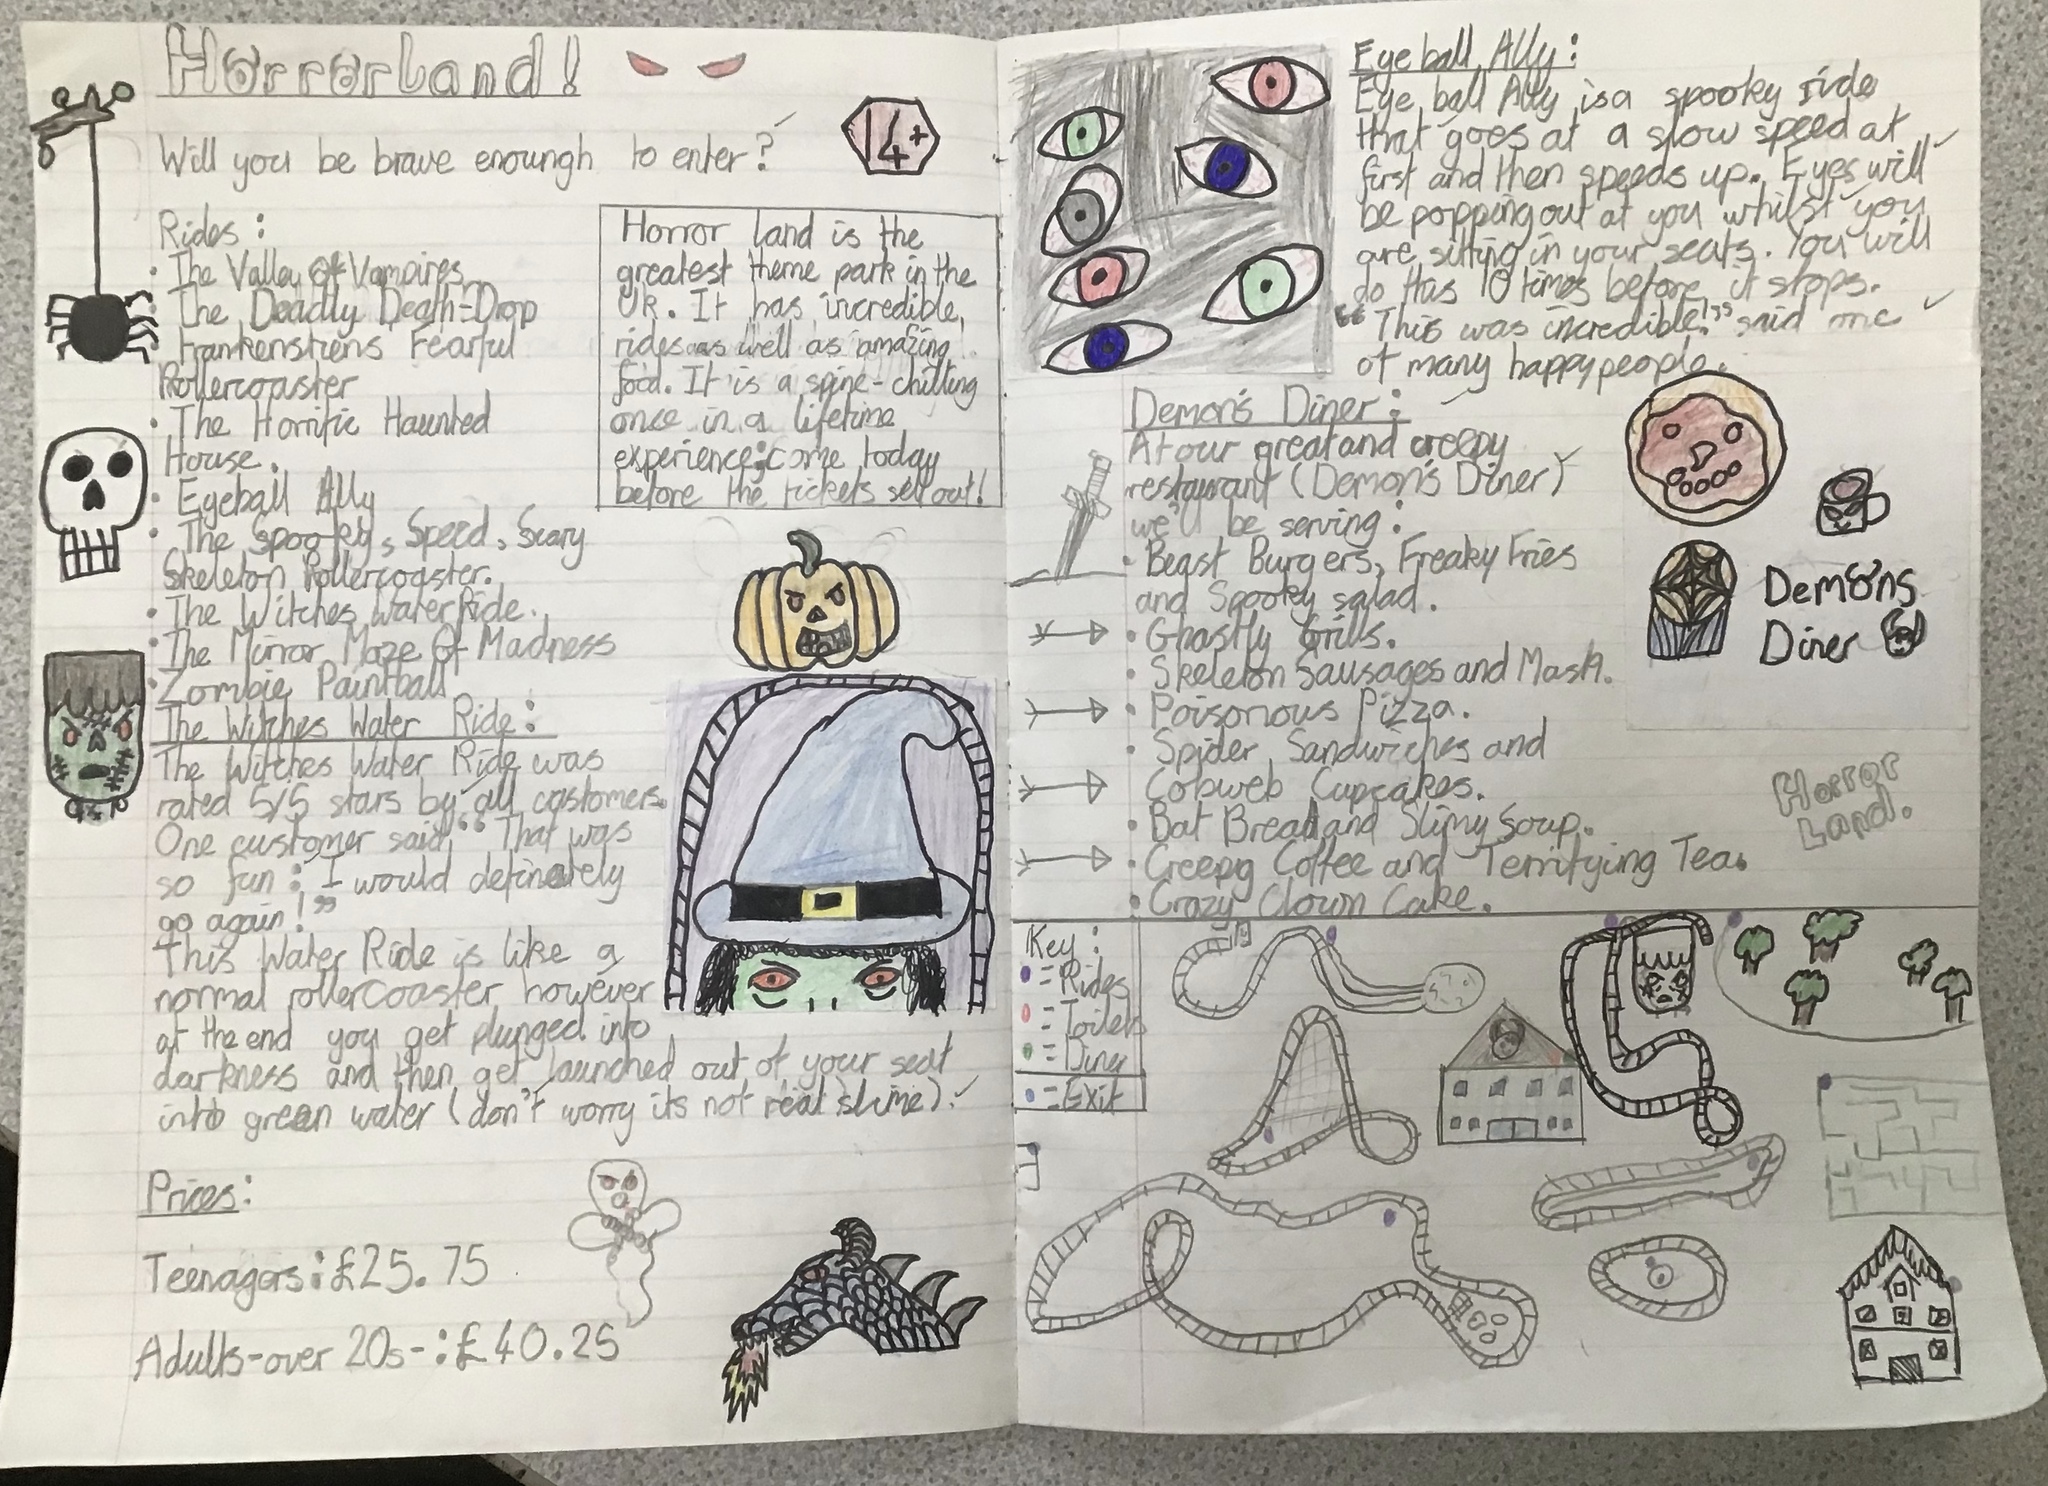 Horrorland!
14+
Will you be brave enoungh to enter?
Rides:
• The Valley Of Vampires
• The Deadly Death-Drop
• Frankenstiens Fearful
Rollercoaster
• The Horrific Haunted
House.
• Eyeball Ally
• The Spooky, Speed, Scary
Skeleton Rollercoaster.
• The Witches Water Ride.
• The Mirror Maze Of Madness
• Zombie Paintball
Horror land is the
greatest theme park in the
UK. It has incredible
rides as well as amazing
food. It is a spine-chilling
once in a lifetime
experience; come today
before the tickets sell out!
The Witches Water Ride:
The Witches Water Ride was
rated 5/5 stars by all customers.
One customer said, "That was
so fun; I would definately
go again!"
This Water Ride is like a
normal rollercoaster however
at the end you get plunged into
darkness and then get launched out of your seat
into green water (don't worry its not real slime).
Prices:
Teenagers: £25.75
Adults-over 20s-: £40.25
Eyeball Ally:
Eye ball Ally is a spooky ride
that goes at a slow speed at
first and then speeds up. Eyes will
be popping out at you whilst you
are sitting in your seats. You will
do this 10 times before it stops.
"This was incredible!" said one
of many happy people.
Demon's Diner:
At our great and creepy
restaurant (Demon's Diner)
we'll be serving:
• Beast Burgers, Freaky Fries
and Spooky salad.
• Ghastly Grills.
• Skeleton Sausages and Mash.
• Poisonous Pizza.
• Spider Sandwiches and
• Cobweb Cupcakes.
• Bat Bread and Slimy Soup.
• Creepy Coffee and Terrifying Tea.
• Crazy Clown Cake.
Demons
Diner
Horror
Land.
Key:
= Rides
= Toilets
= Diner
= Exit